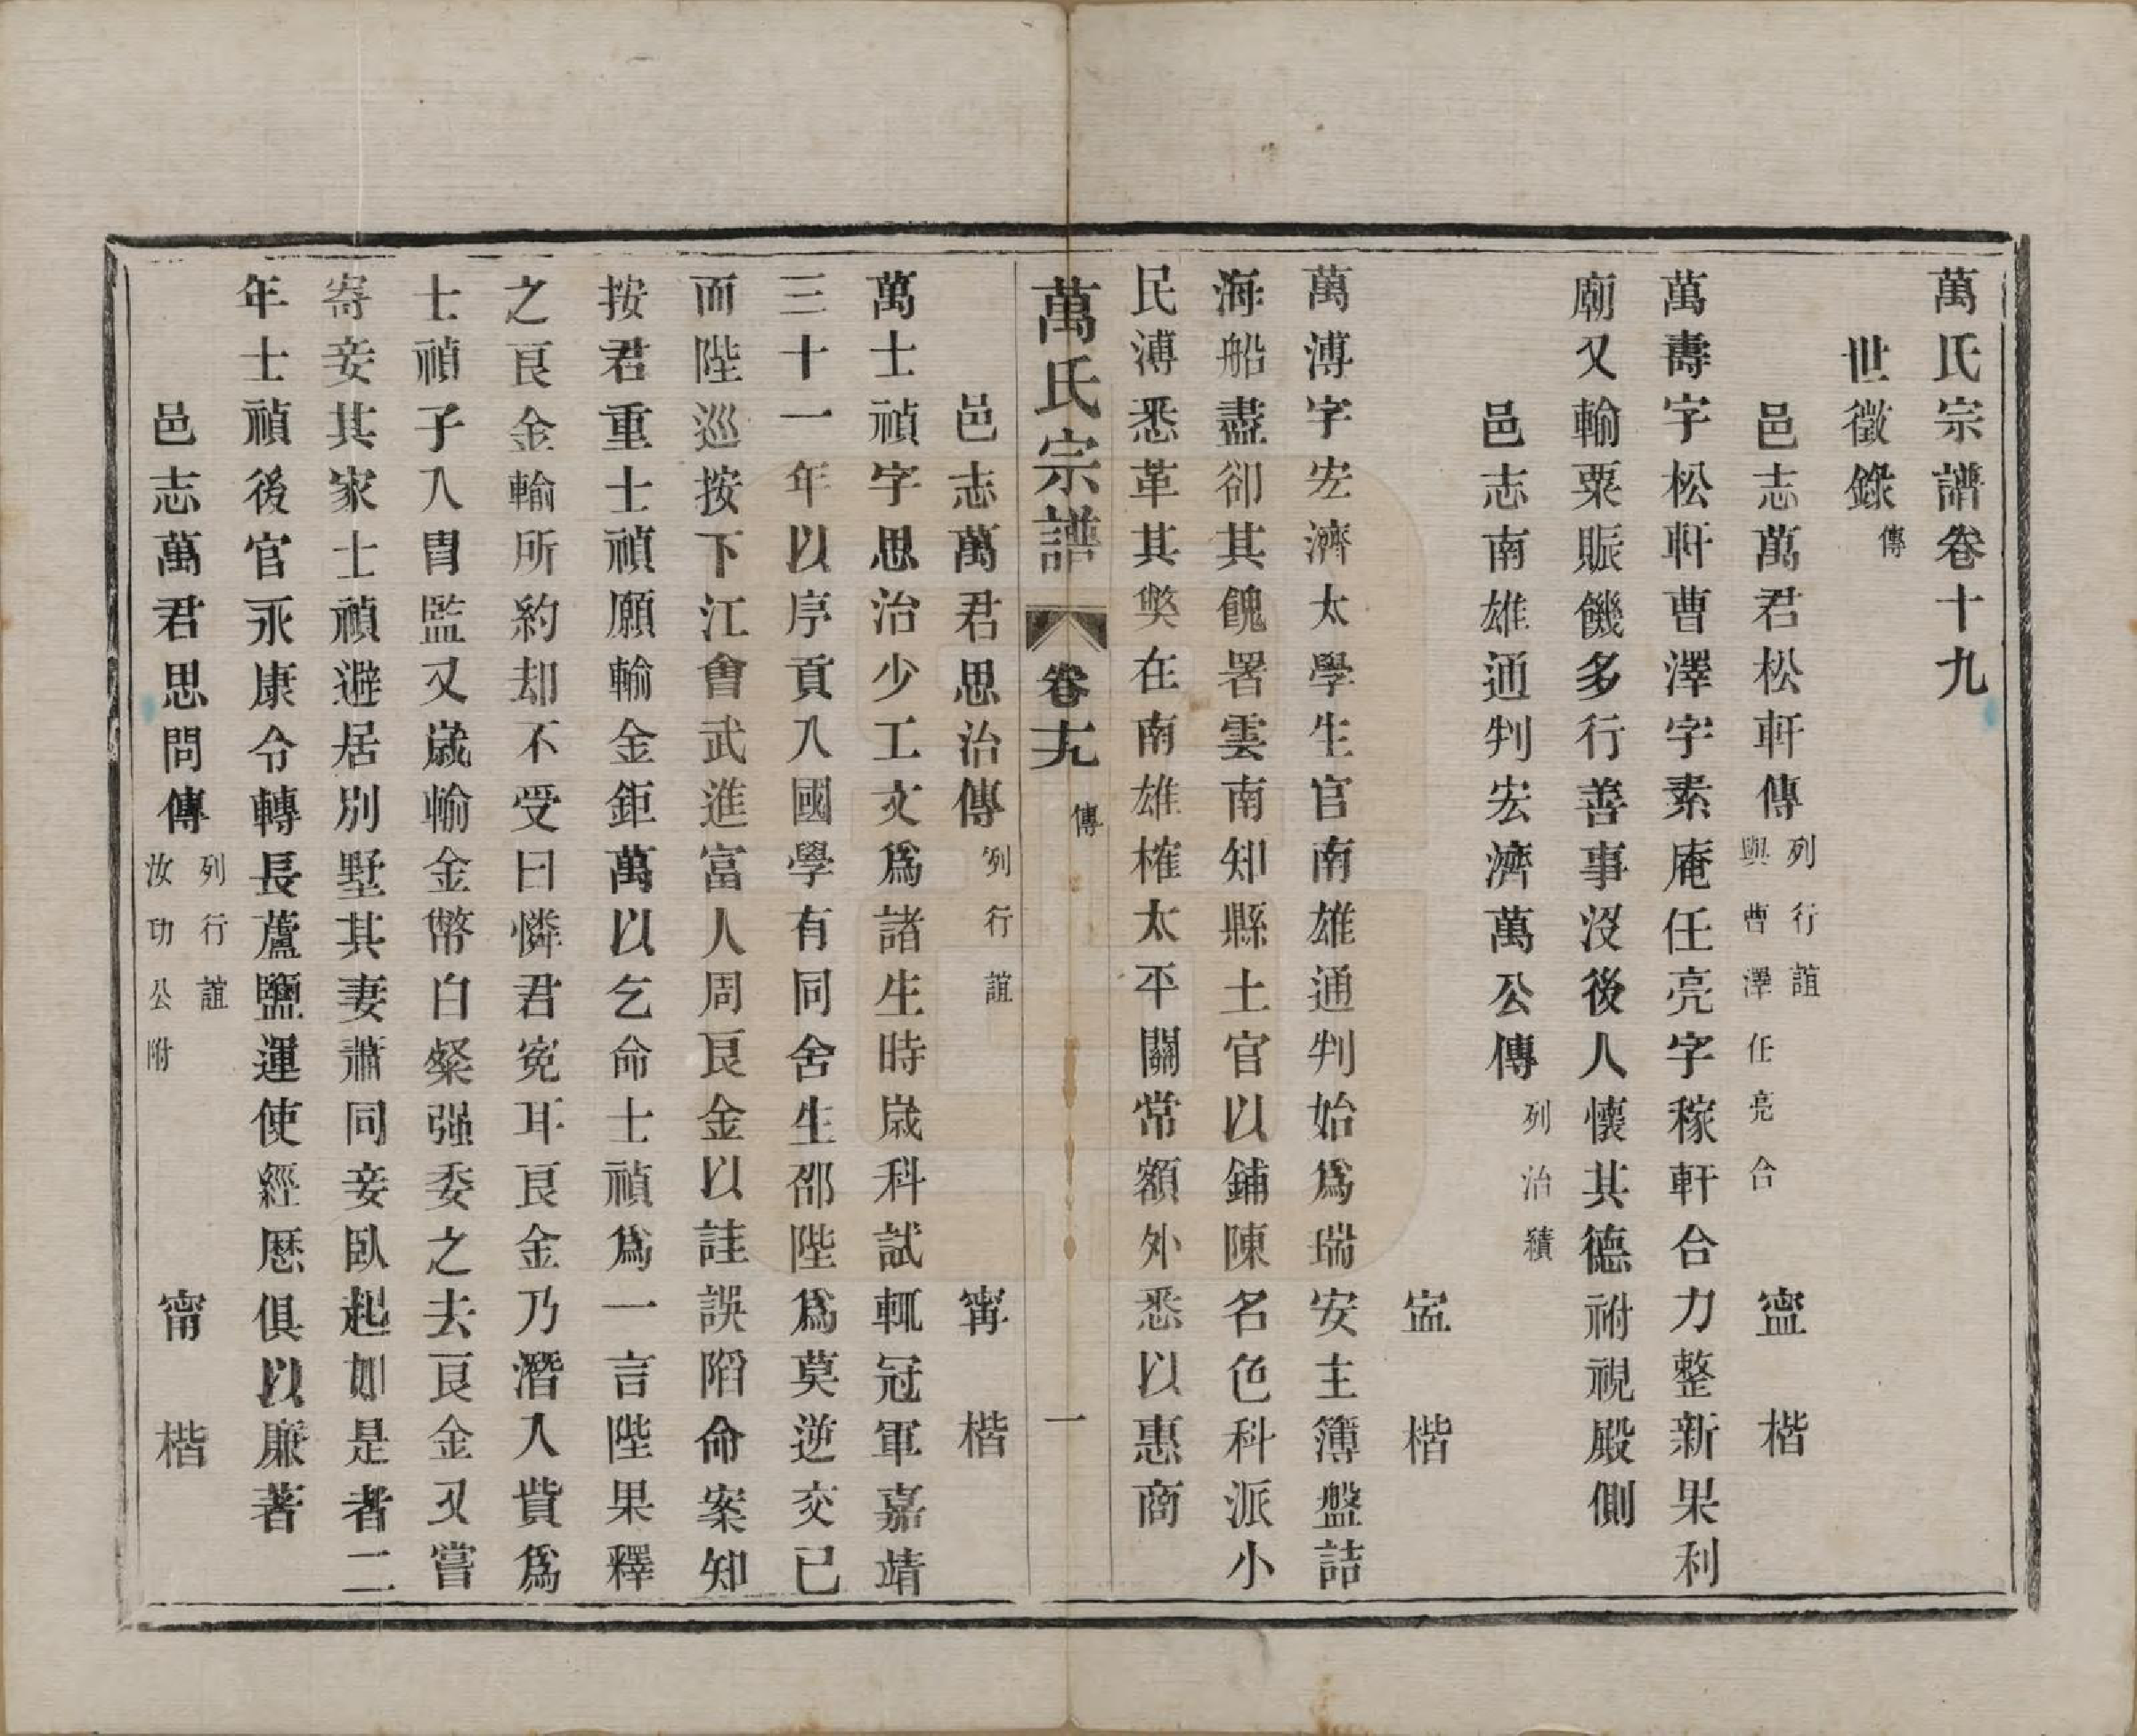 萬氏宗譜卷十九
世徵錄傳
邑志萬君松軒傳列行誼與曹澤任亮合 寍楷
萬壽字松軒曹澤字素庵任亮字稼軒合力整新果利
廟又輸粟賑饑多行善事沒後人懷其德祔視殿側
邑志南雄通判宏濟萬公傳列治績
寍楷
萬溥字宏濟太學生官南雄通判始爲瑞安主簿盤詰
海船盡卻其餽署雲南知縣土官以鋪陳名色科派小
民溥悉革其獘在南雄榷太平關常額外悉以惠商
萬氏宗譜 卷十九 傳 一
邑志萬君思治傳列行誼 甯楷
萬士禎字思治少工文爲諸生時歲科試輒冠軍嘉靖
三十一年以序貢入國學有同舍生邵陛爲莫逆交已
而陛巡按下江會武進富人周良金以詿誤陷命案知
按君重士禎願輸金鉅萬以乞命士禎爲一言陛果釋
之良金輸所約却不受曰憐君寃耳良金乃潛入貲爲
士禎子入胄監又歲輸金幣白粲强委之去良金又嘗
寄妾其家士禎避居別墅其妻蕭同妾臥起如是者二
年士禎後官永康令轉長蘆鹽運使經歷俱以廉著
邑志萬君思問傳列行誼汝功公附 甯楷